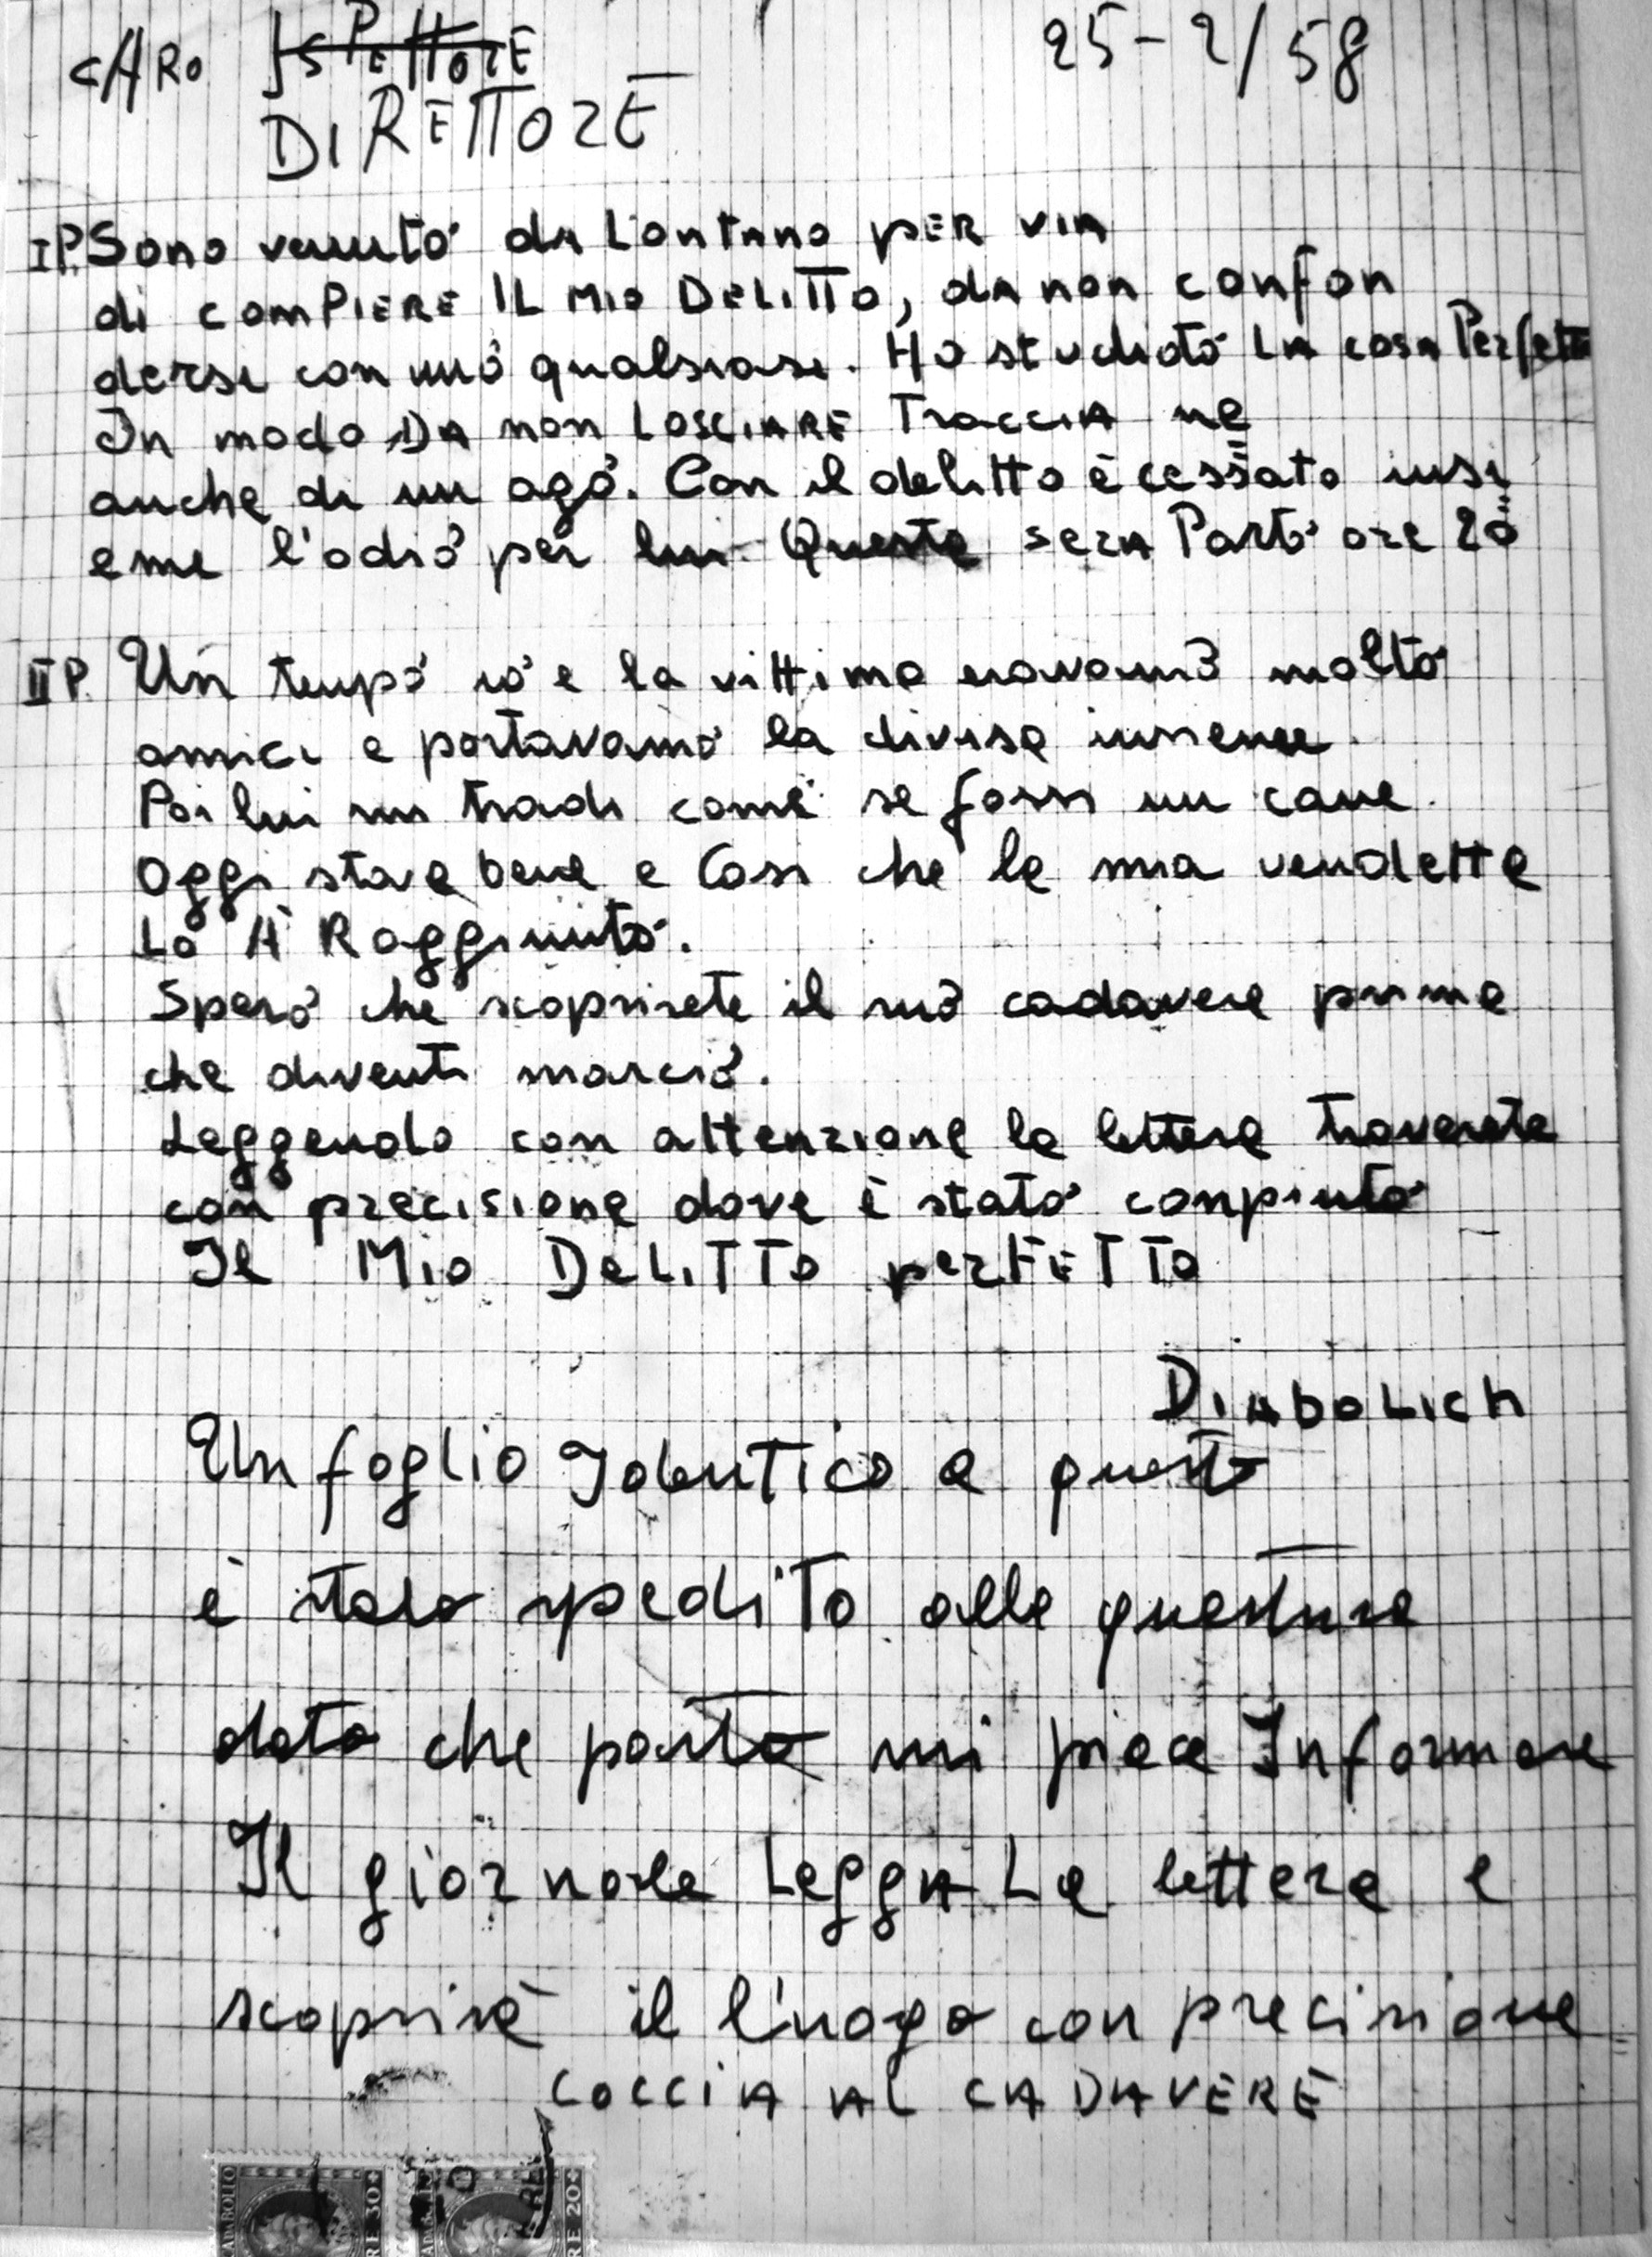 CARO ISPETTORE 25-2/58
DIRETTORE
I P. Sono venuto da Lontano PER VIA
di COMPIERE IL MIO DELITTO, da non confon
dersi con uno qualsiasi. Ho studiato LA cosa Perfetta
In modo DA non LASCIARE TRACCIA ne
anche di un ago. Con il delitto è cessato insi
eme l'odio per lui. Questa serA Parto ore 20
II P. Un tempo io e la vittima eravamo molto
amici e portavamo la divisa insieme.
Poi lui mi tradi come se fossi un cane.
Oggi stava bene e Cosi che la mia vendetta
Lo A Raggiunto.
Spero che scoprirete il suo cadavere prima
che diventi marcio.
Leggendo con attenzione la lettera troverete
con precisione dove è stato conpiuto
Il Mio DELITTO perFETTO
DIABOLICH
Un foglio Identico a questo
è stato spedito alla questura
dato che parto mi piace Informare
Il giornale LeggA La lettera e
scoprirà il l'uogo con precisione
CACCIA AL CADAVERE
DA BOLLO
RE 30
DA BOLLO
RE 20